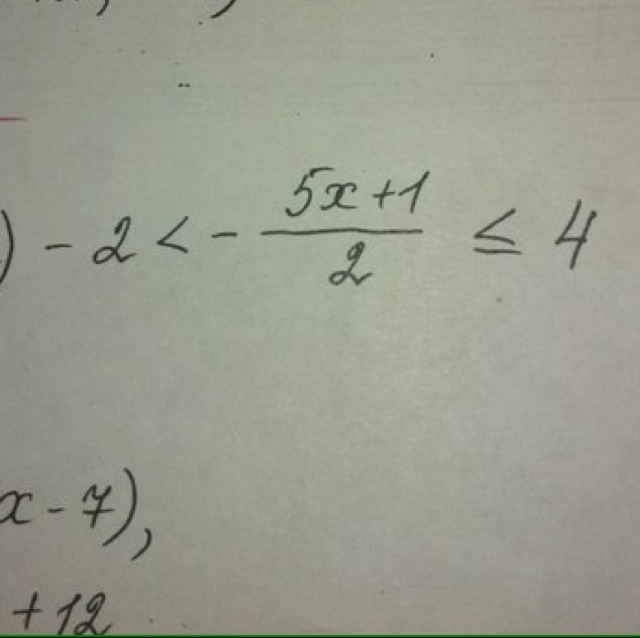 ) - 2 < - \frac{5x+1}{2} ≤ 4
x - 7),
+ 12